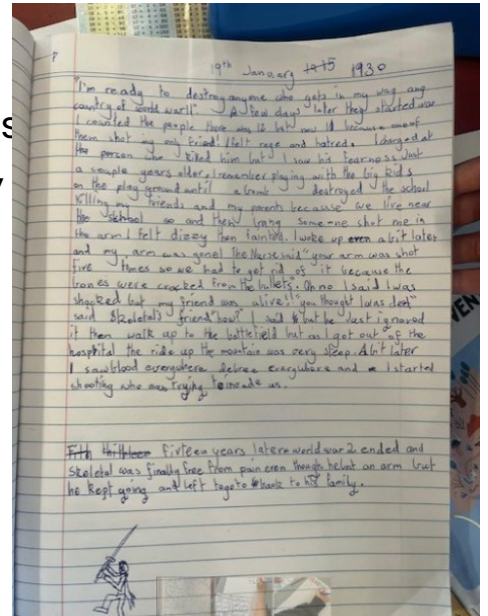 19th January 1930
"I'm ready to destroy anyone who gets in my way and
country of world war II". A few days later they started war
I counted the people there was 12 but now 11 because one of
them shot my only friend! I felt rage and hatred. I charged at
the person who killed him but I saw his fearness Just
a couple years older, I remember playing with the big kids
on the play ground until a bomb destroyed the school
killing my friends and my parents because we live near
the school so and then bang some-one shot me in
the arm I felt dizzy then fainted. I woke up even a bit later
and my arm was gone! The Nurse said "your arm was shot
five times so we had to get rid of it because the
bones were cracked from the bullets". Oh no I said I was
shocked but my friend was alive! "you thought I was dead"
said Skeletal's friend "how" I said but he Just ignored
it then walk up to the battlefield but as I got out of the
hospital the ride up the mountain was very steep. A bit later
I saw blood everywhere debree everywhere and I started
shooting who was trying to invade us.
fifteen years later world war 2 ended and
Skeletal was finally free from pain even though he lost an arm but
he kept going and left to go to back to his family.